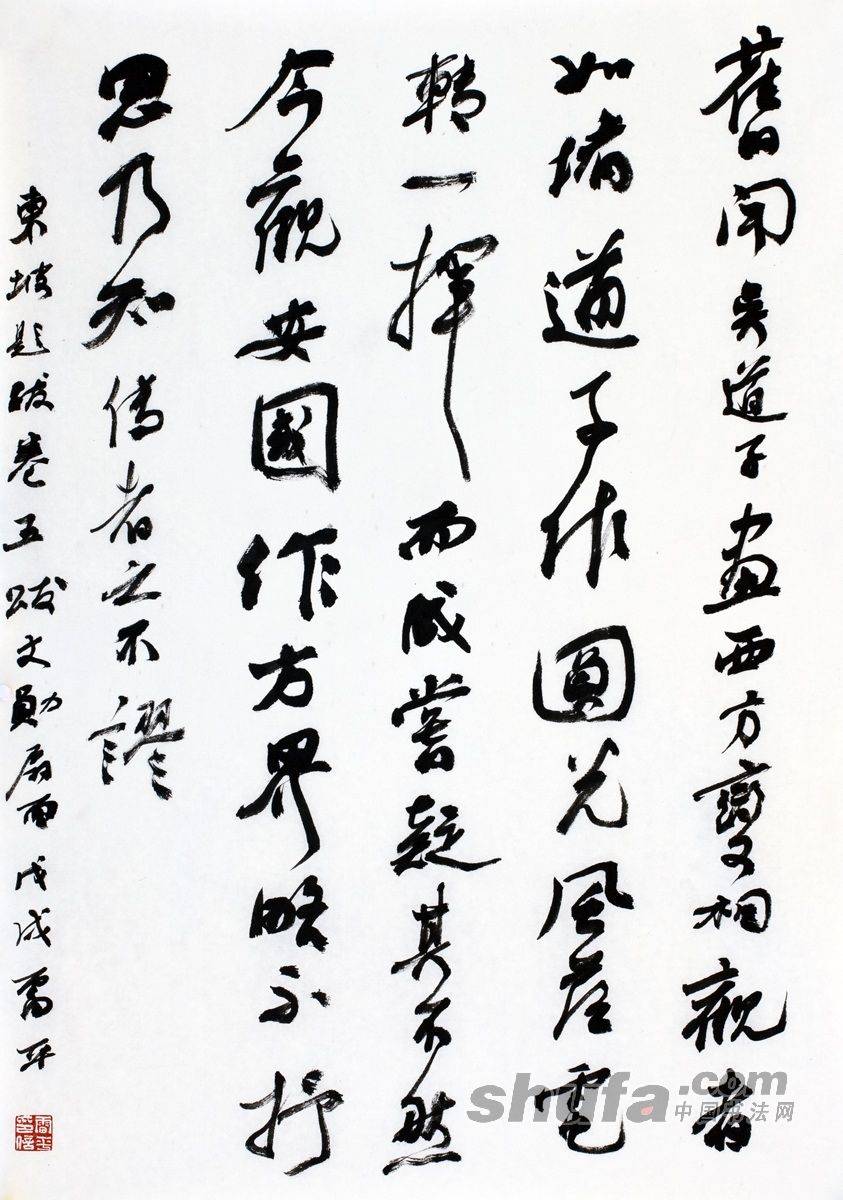 舊聞吳道子畫西方變相觀者
如堵道子作圓光風落電
轉一揮而成嘗疑其不然
今觀安國作方界略不抒
思乃知傳者之不謬
東坡題跋卷五跋文勛扇面戊戌雷平
shufa.com
中国书法网